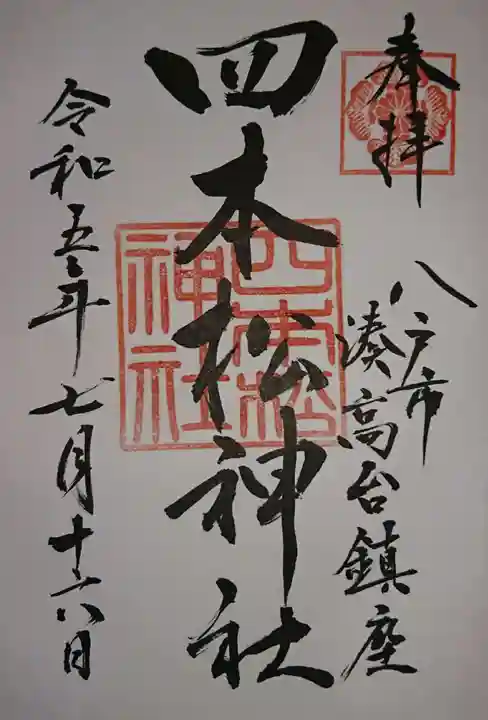 奉拝
八戸市
湊高台鎮座
四本松神社
四本松
神社
令和五年七月十六日